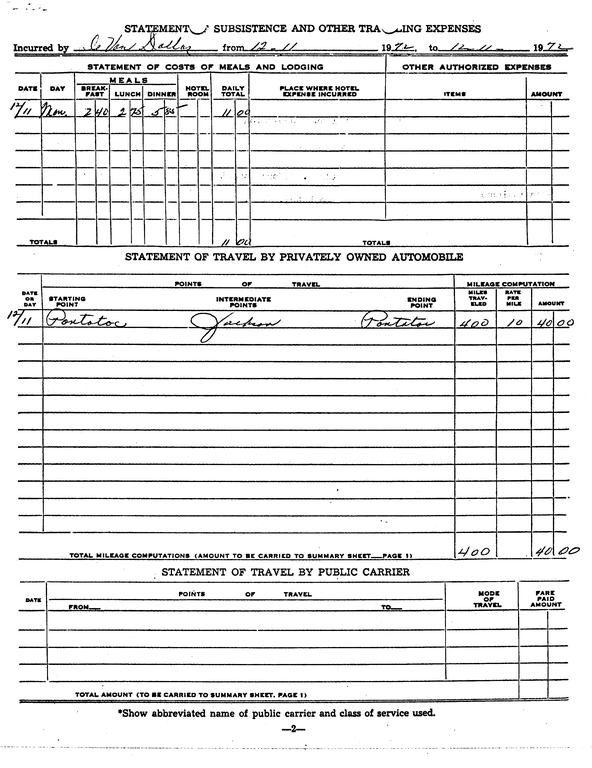 STATEMENT SUBSISTENCE AND OTHER TRA ING EXPENSES
Incurred by C Van Dallas from 12-11 1972, to 12-11- 1972
STATEMENT OF COSTS OF MEALS AND LODGING OTHER AUTHORIZED EXPENSES
DATE DAY MEALS BREAK-FAST LUNCH DINNER HOTEL ROOM DAILY TOTAL PLACE WHERE HOTEL EXPENSE INCURRED ITEMS AMOUNT
12/11 Mon. 2 40 2 75 5 85 11 00
TOTALS 11 00 TOTALS
STATEMENT OF TRAVEL BY PRIVATELY OWNED AUTOMOBILE
POINTS OF TRAVEL MILEAGE COMPUTATION
DATE OR DAY STARTING POINT INTERMEDIATE POINTS ENDING POINT MILES TRAV-ELED RATE PER MILE AMOUNT
12/11 Pontotoc Jackson Pontotoc 400 10 40 00
TOTAL MILEAGE COMPUTATIONS (AMOUNT TO BE CARRIED TO SUMMARY SHEET PAGE 1) 400 40 00
STATEMENT OF TRAVEL BY PUBLIC CARRIER
DATE POINTS OF TRAVEL MODE OF TRAVEL FARE PAID AMOUNT
FROM TO
TOTAL AMOUNT (TO BE CARRIED TO SUMMARY SHEET, PAGE 1)
*Show abbreviated name of public carrier and class of service used.
—2—